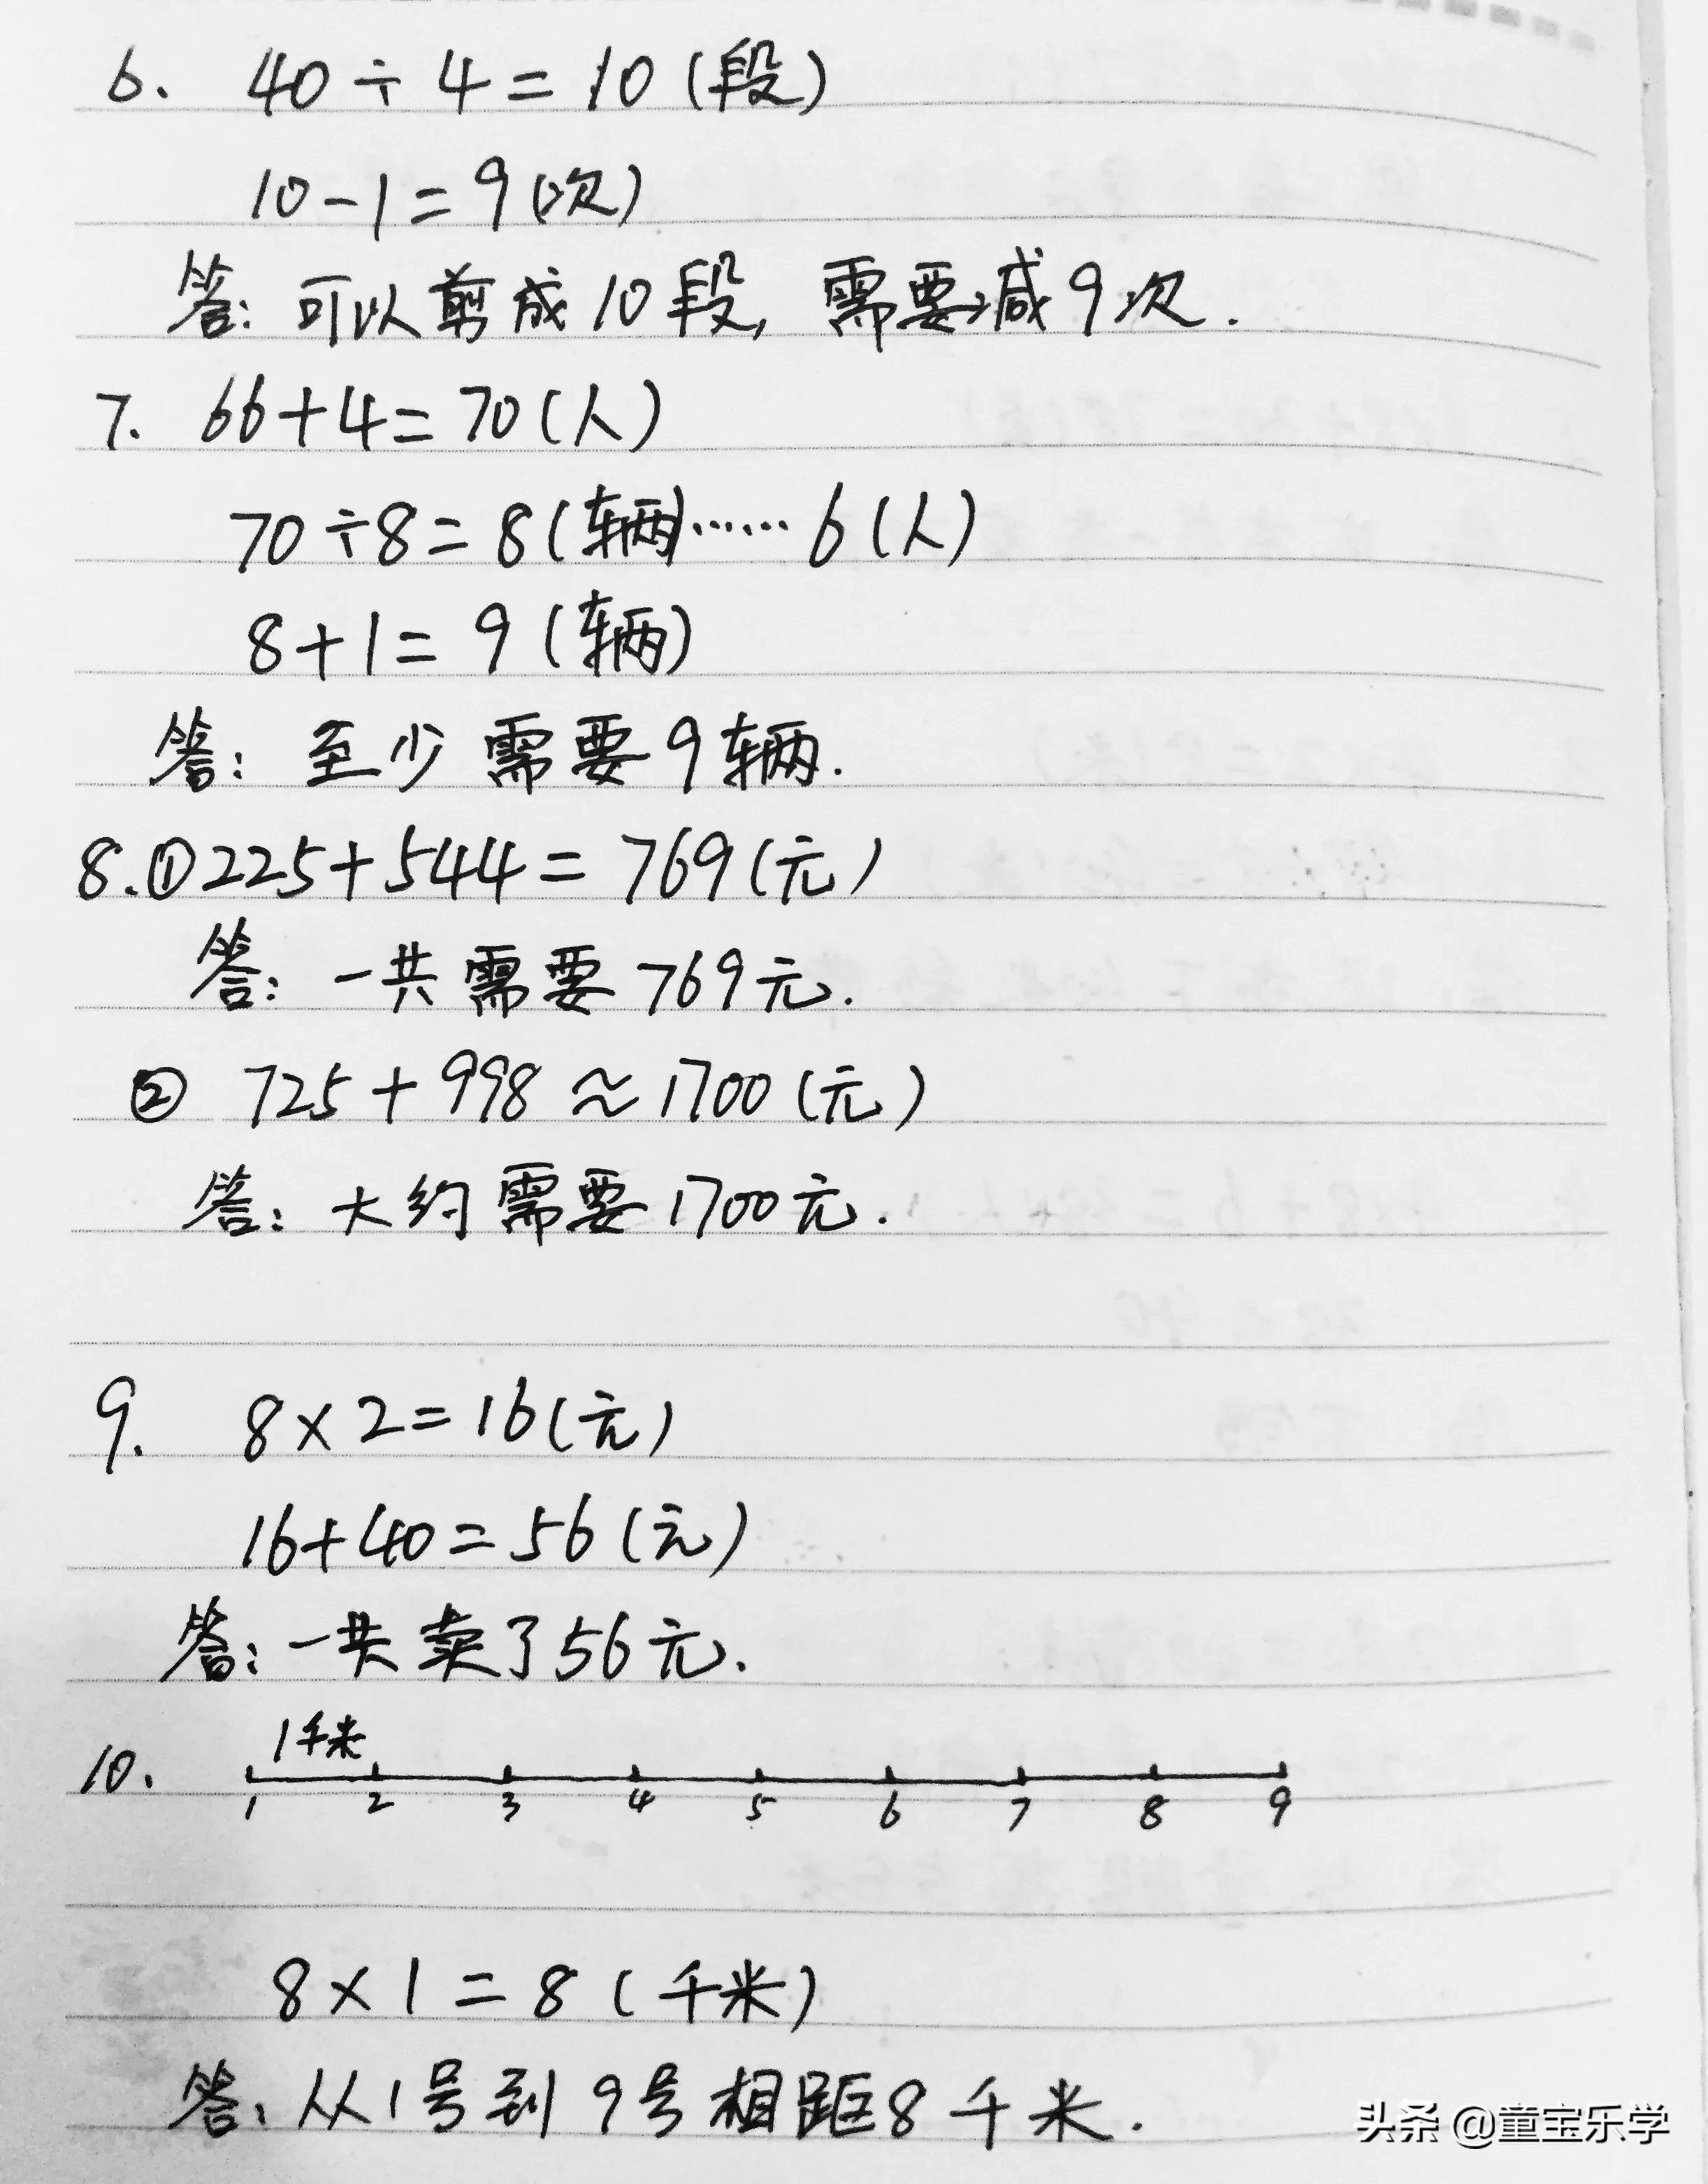 6. 40÷4=10(段)
10-1=9(次)
答:可以剪成10段,需要减9次.
7. 66+4=70(人)
70÷8=8(辆)……6(人)
8+1=9(辆)
答:至少需要9辆.
8.①225+544=769(元)
答:一共需要769元.
② 725+998≈1700(元)
答:大约需要1700元.
9. 8×2=16(元)
16+40=56(元)
答:一共卖了56元.
1千米
10.
1 2 3 4 5 6 7 8 9
8×1=8(千米)
答:从1号到9号相距8千米.
头条 @童宝乐学